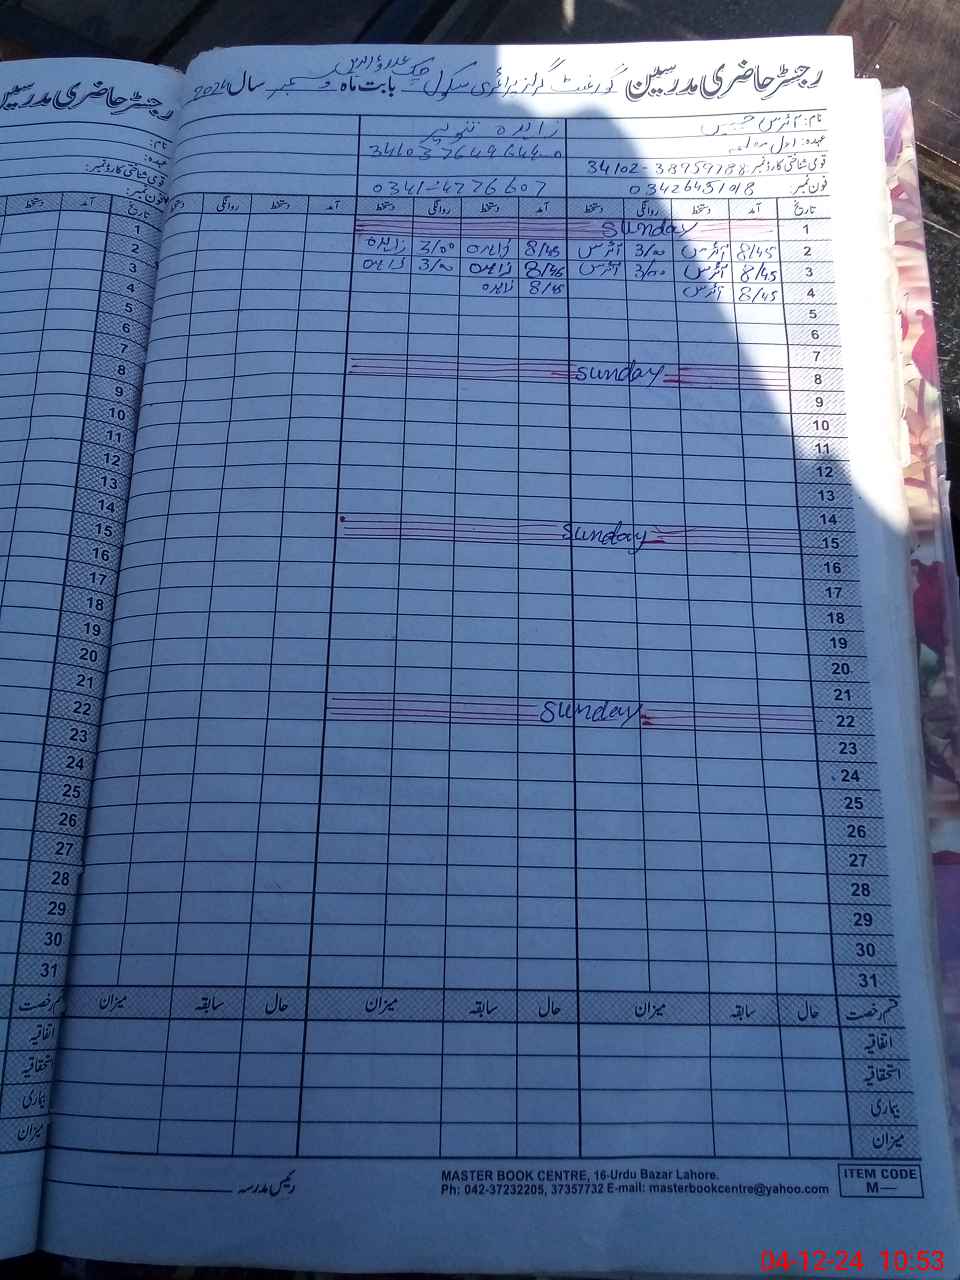 رجسٹر حاضری مدرسین گورنمنٹ گرلز پرائمری سکول چک بابت ماہ دسمبر سال 2024
نام: حسین زاہدہ تنویر
عہدہ: اول
قومی شناختی کارڈ نمبر: 34102-3895918
فون نمبر: 03426451018 0341-4776607
تاریخ آمد دستخط روانگی دستخط آمد دستخط روانگی دستخط آمد دستخط روانگی دستخط
1 Sunday
2 8/45 3/00 8/45 زاہدہ 3/00 زاہدہ
3 8/45 3/00 8/45 زاہدہ 3/00 زاہدہ
4 8/45 8/45 زاہدہ
5
6
7
8 Sunday
9
10
11
12
13
14
15 Sunday
16
17
18
19
20
21
22 Sunday
23
24
25
26
27
28
29
30
31
قسم رخصت حال سابقہ میزان حال سابقہ میزان حال سابقہ میزان
اتفاقیہ
استحقاقیہ
بیماری
میزان
رئیس مدرسہ
MASTER BOOK CENTRE, 16-Urdu Bazar Lahore.
Ph: 042-37232205, 37357732 E-mail: masterbookcentre@yahoo.com
ITEM CODE
M—
رجسٹر حاضری مدرسین
نام:
عہدہ:
قومی شناختی کارڈ نمبر:
فون نمبر:
تاریخ آمد دستخط
1
2
3
4
5
6
7
8
9
10
11
12
13
14
15
16
17
18
19
20
21
22
23
24
25
26
27
28
29
30
31
قسم رخصت
اتفاقیہ
استحقاقیہ
بیماری
میزان
04-12-24 10:53